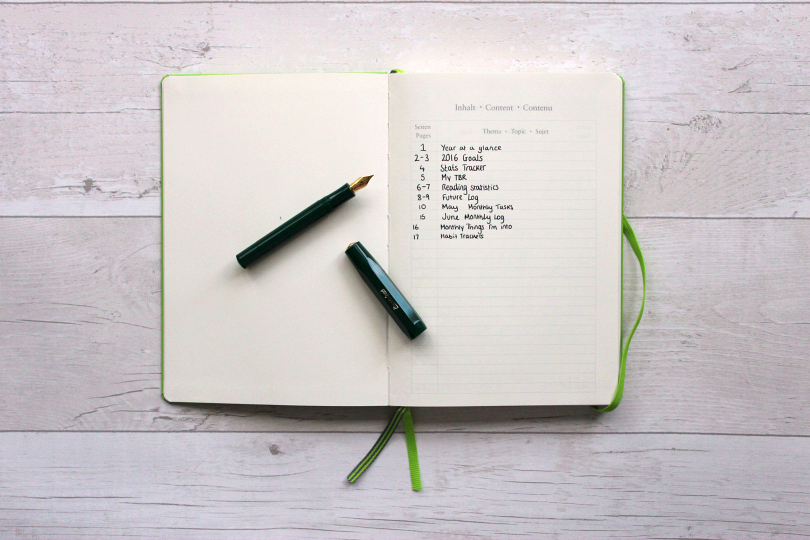 Inhalt • Content • Contenu
Seiten Pages
Thema • Topic • Sujet
1 Year at a glance
2-3 2016 Goals
4 Stats Tracker
5 My TBR
6-7 Reading statistics
8-9 Future Log
10 May Monthly Tasks
15 June Monthly Log
16 Monthly Things I'm into
17 Habit Trackers